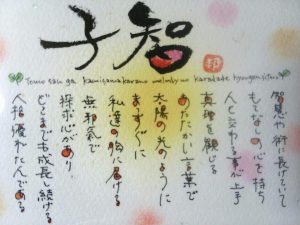 智子
tomo san ga kamisama kara no
智恵や術に長けていて
もてなしの心を持ち
人と交わる事が上手
真理を観じる
あたたかい言葉で
太陽の光のように
まっすぐに
私達の胸に届ける
無邪気で
探求心があり
どこまでも成長し続ける
人格優れたんである